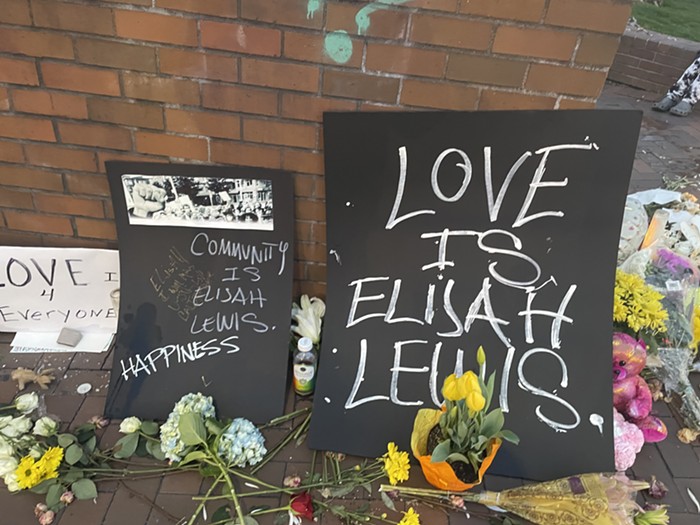 LOVE I
4
Everyone
COMMUNITY
IS
ELIJAH
LEWIS.
HAPPINESS
LOVE
IS
ELIJAH
LEWIS